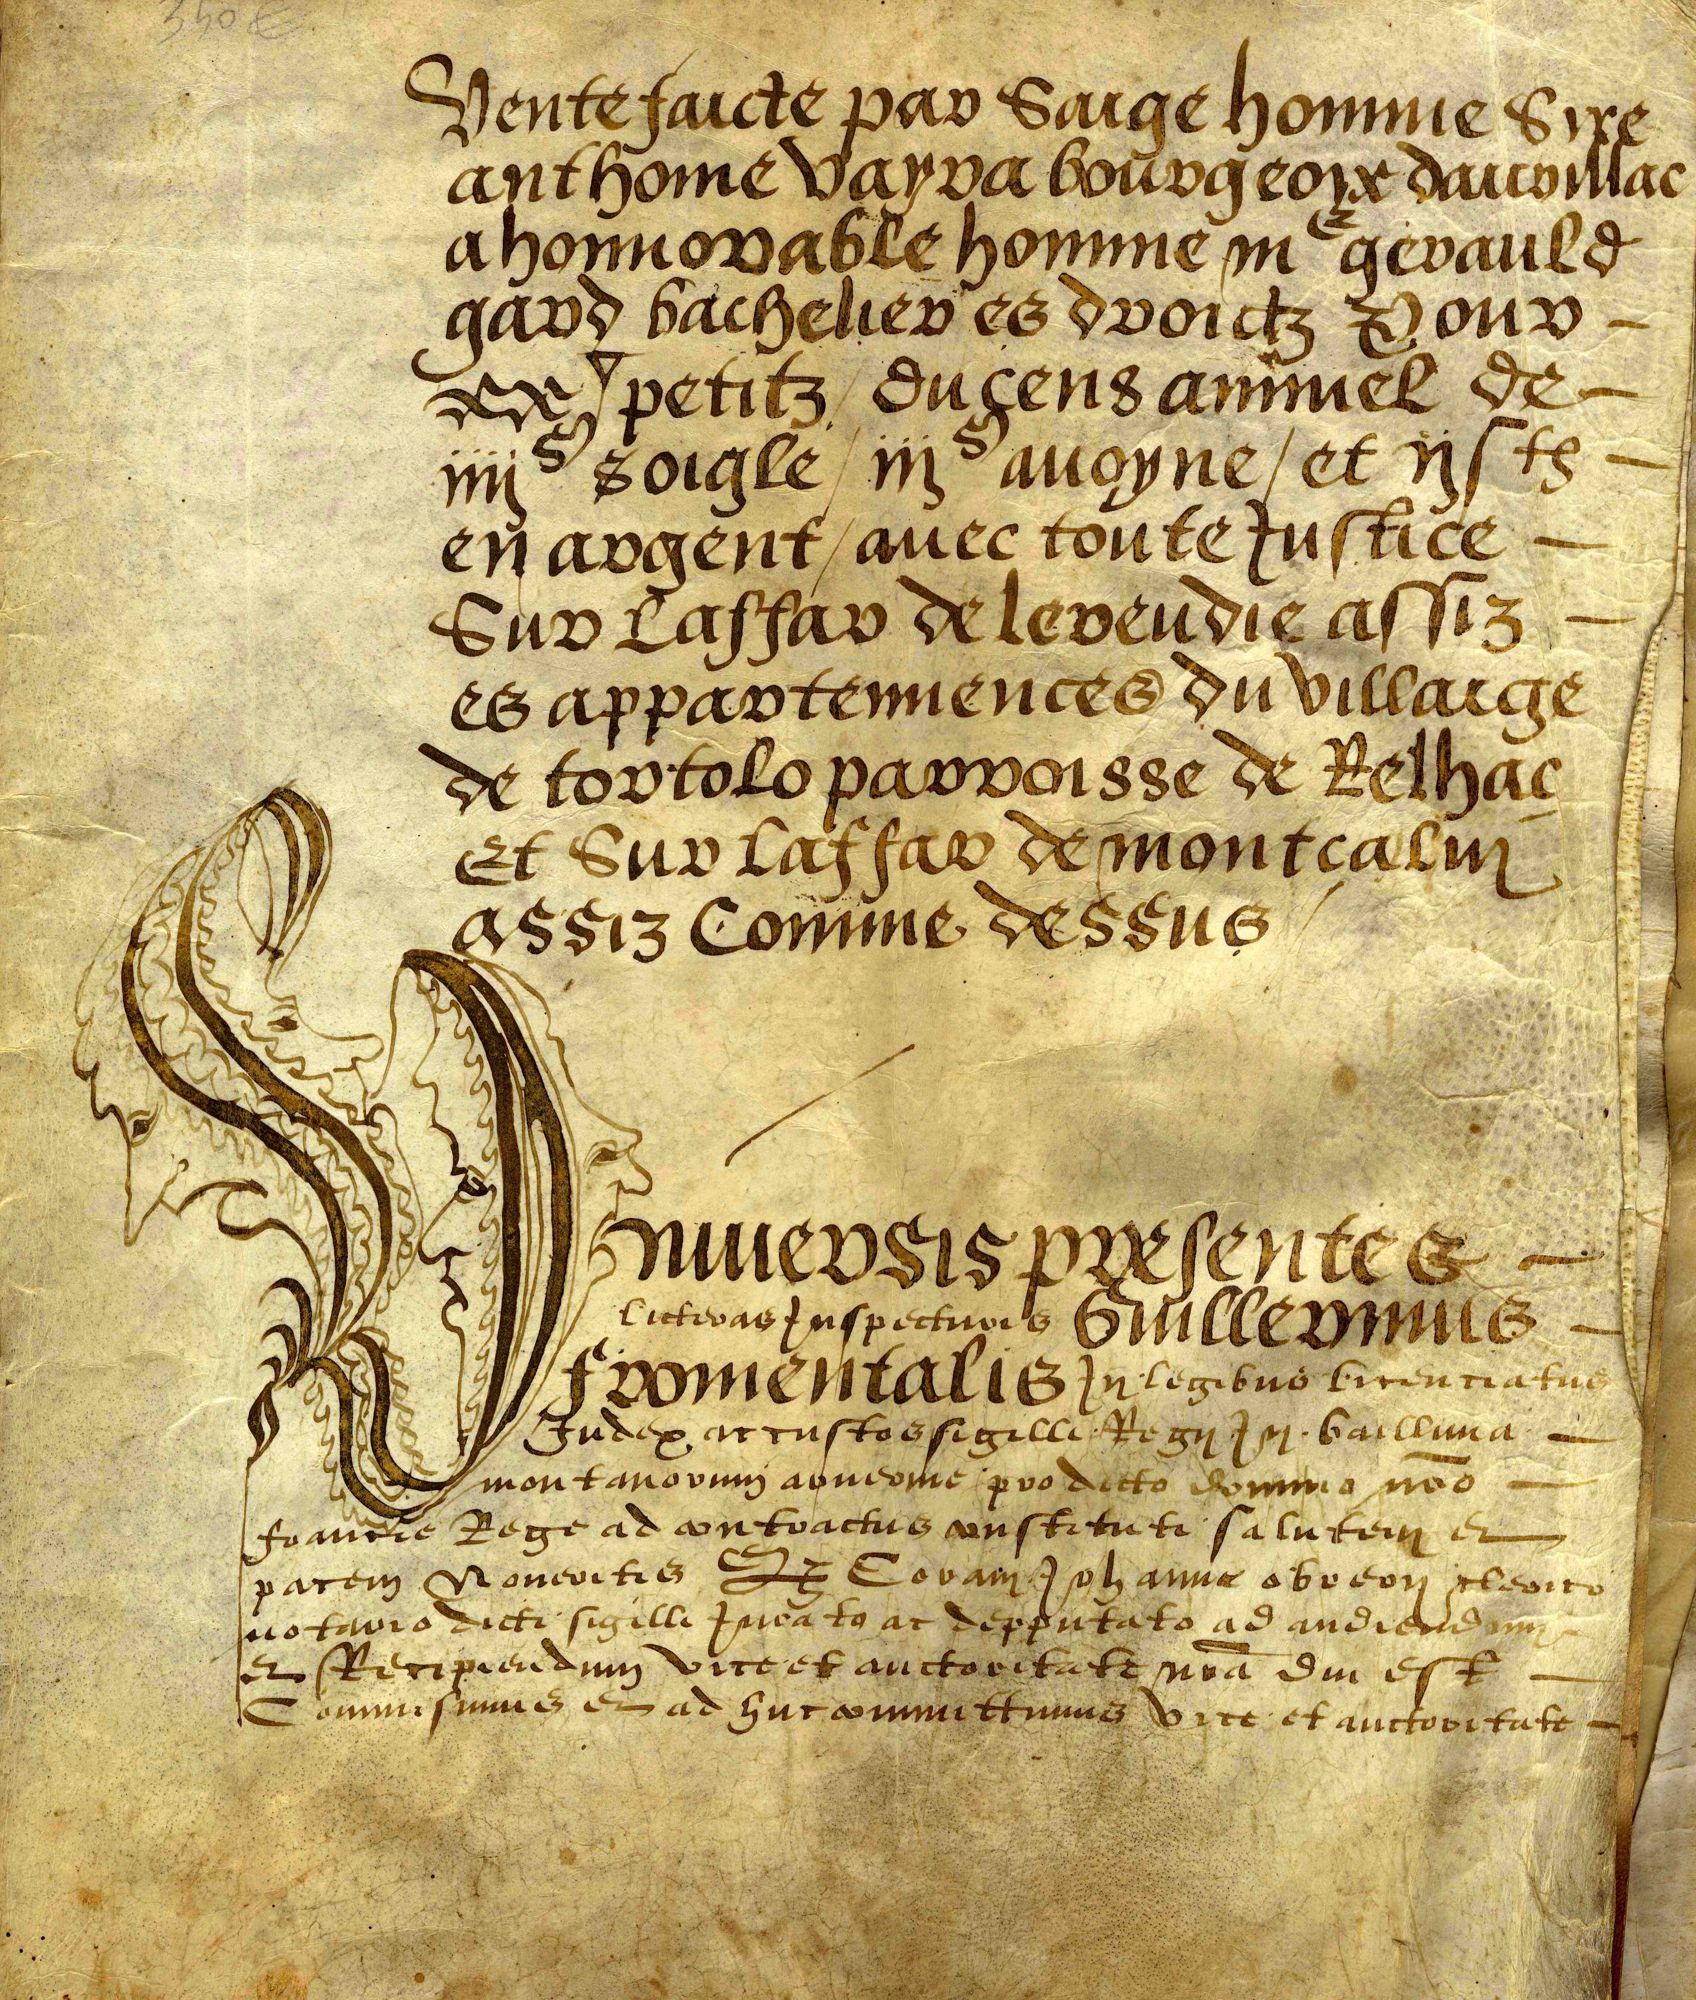 350 €
Vente faicte par Saige homme Sire
anthoine vayra bourgeoix daurillac
a honnorable homme m^e gerauld
gard bachelier es droictz Pour
xx petitz / du cens annuel de
iiij s soigle / iij s avoyne / et ij s ts
en argent / avec toute Justice
Sur Laffar de leveudie assiz
es appartennences du villaige
de tortolo parroisse de Relhac
Et Sur laffar de montcalm
assiz Comme dessus
Universis presentes
licteras Inspecturis Guillermus
fromentalis In legibus licenciatus
Judex ac custos sigilli Regii In bailliva
montanorum arvernie pro dicto domino nro
francie Rege ad contractus constituti salutem et
pacem Noveritis Coram Johanne obreri clerico
notario dicti sigilli Jurato ac depputato ad audiendum
et Recipiendum vice et auctoritate nra Cui est
Commisimus et ad huc committimus vice et auctoritate